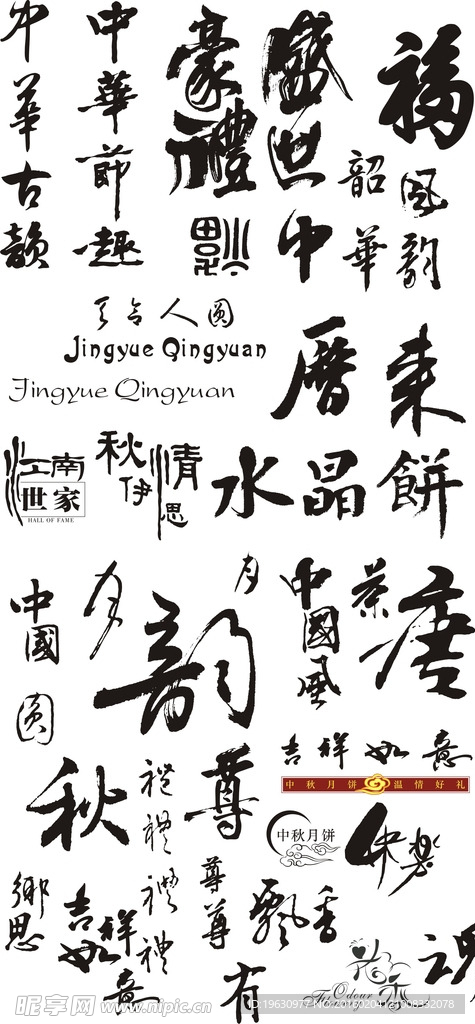 中華古韻
中華節趣
豪禮
盛世
中華
福
韶
風韵
福
人圓
Jingyue Qingyuan
Jingyue Qingyuan
水晶餅
江南
世家
HALL OF FAME
秋伊
情思
中國
月
圓
韵
月
中國風
茶
唐
吉祥如意
中秋月饼 温情好礼
秋
禮
禮
尊
中秋月饼
鄉思
吉祥如意
禮
禮
尊
尊
飄香
有
Odour
昵享网 www.nipic.cn
ID:19630977